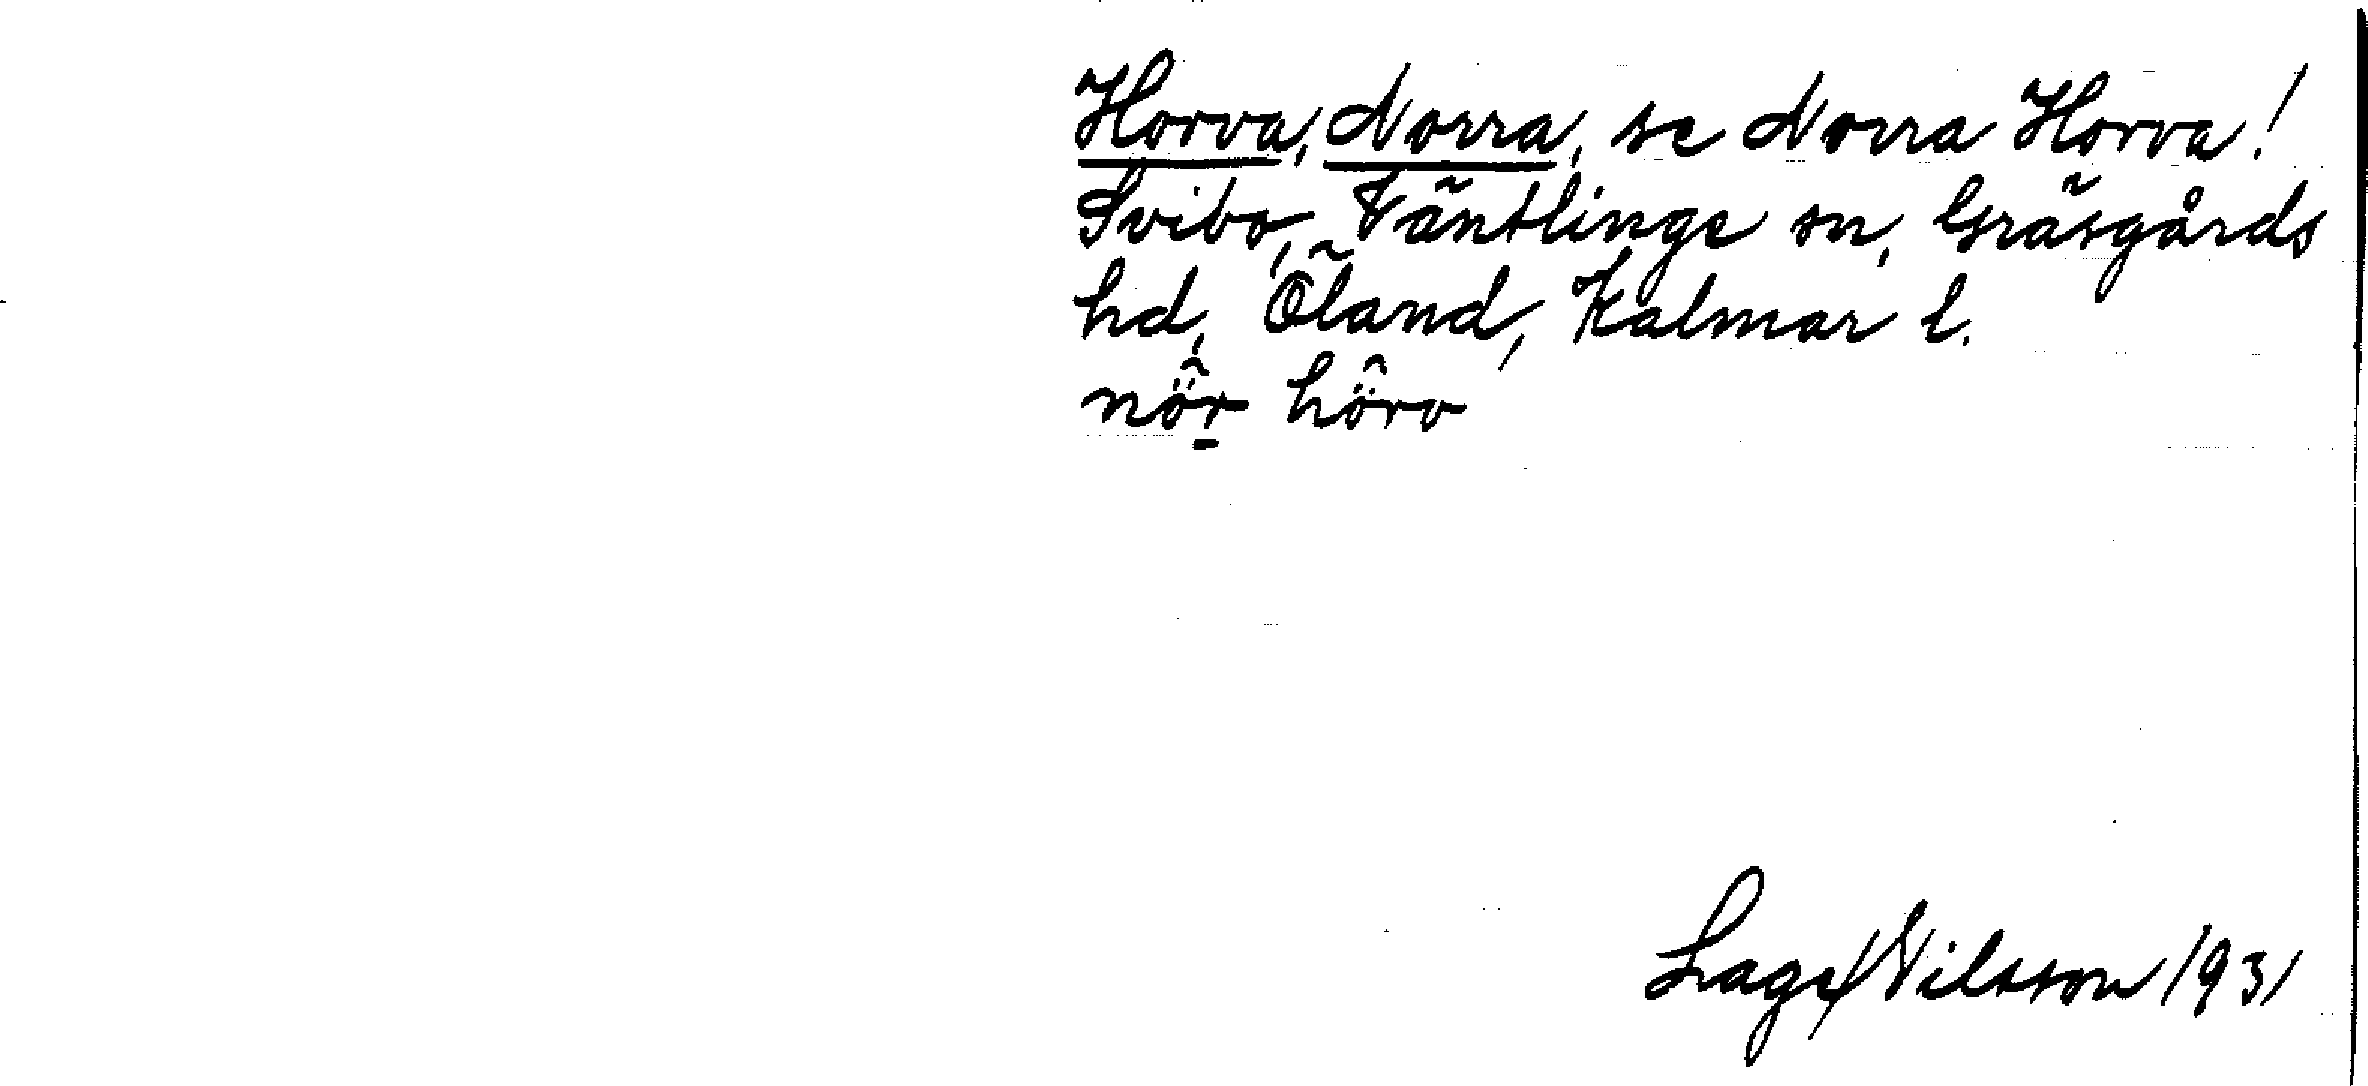 Horva, Norra, se Norra Horva!
Svibo, Väntlinge sn, Gräsgårds
hd, Öland, Kalmar l.
nör hörv
Lage Nilsson 1931